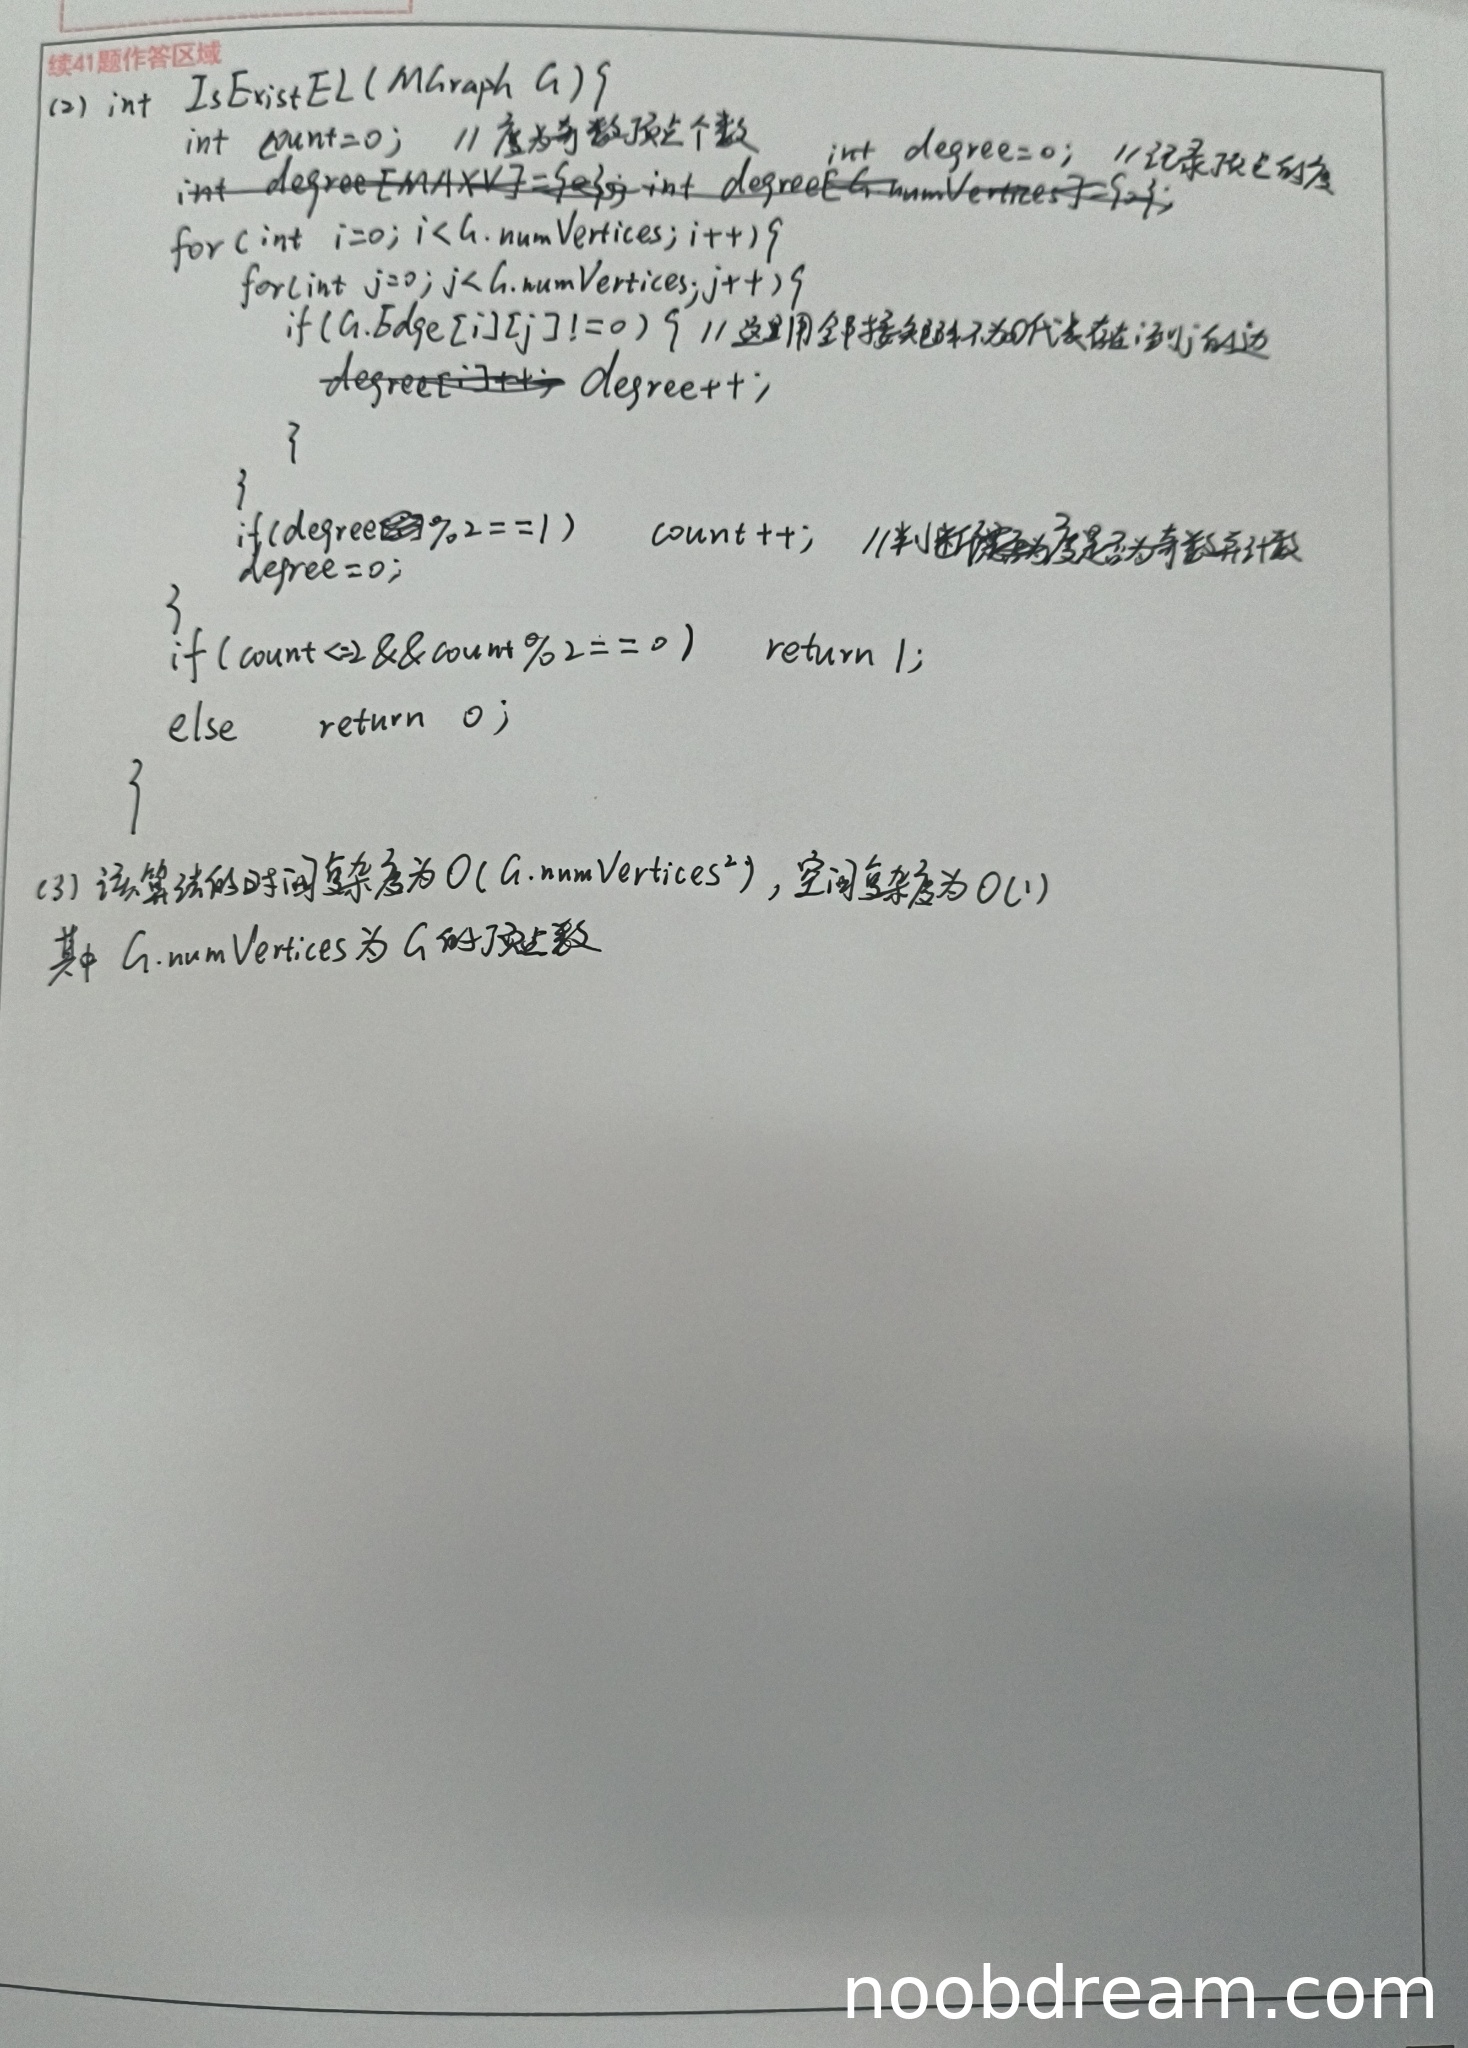 续41题作答区域
(2) int IsExistEL(MGraph G){
int count=0; //度为奇数顶点个数 int degree=0; //记录顶点的度
int degree[MAXV]={0}; int degree[G.numVertices]={0};
for(int i=0; i<G.numVertices; i++){
for(int j=0; j<G.numVertices; j++){
if(G.Edge[i][j]!=0){ //这里用邻接矩阵不为0代表存在i到j的边
degree[i]++; degree++;
}
}
if(degree%2==1) count++; //判断度是否为奇数并计数
degree=0;
}
if(count<=2&&count%2==0) return 1;
else return 0;
}
(3) 该算法的时间复杂度为O(G.numVertices²),空间复杂度为O(1)
其中 G.numVertices为G的顶点数
noobdream.com